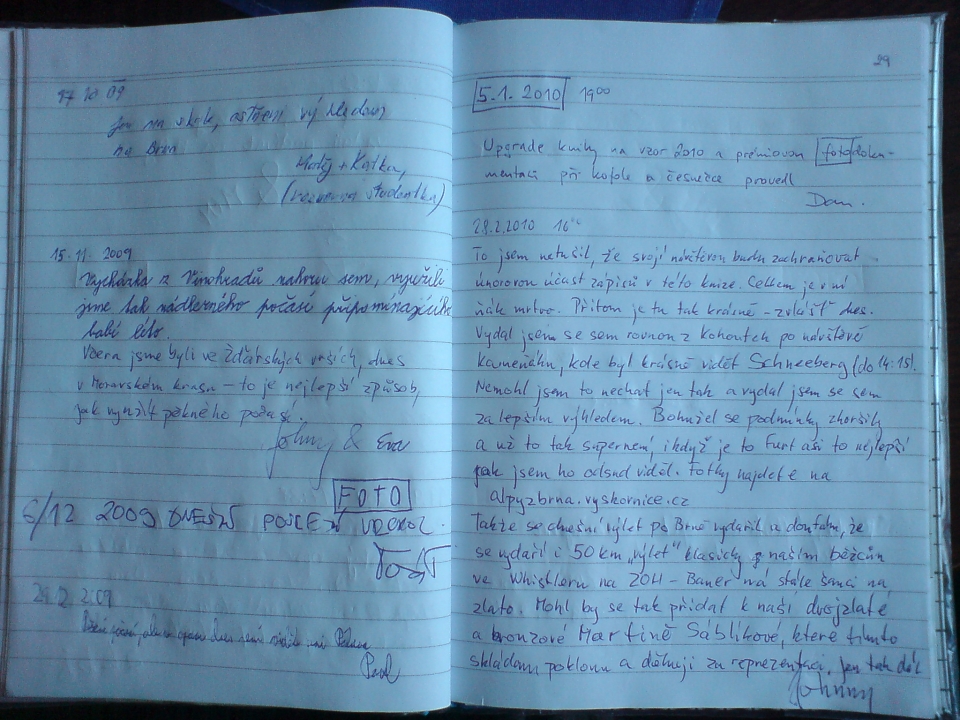 17 10 09
jsme na skále, výhledem
na Brno
Matěj + Katka,
(studentka)
15.11.2009
Vycházka z Vinohradů nahoru sem, využili
jsme tak nádherného počasí připomínajícího
babí léto.
Včera jsme byli ve Žďárských vrších, dnes
v Moravském krasu – to je nejlepší způsob,
jak využít pěkného počasí.
Johny & Eva
FOTO
6/12 2009 DNEŠNÍ
2009
Pavel
29
5.1. 2010 19⁰⁰
Upgrade knihy na vzor 2010 a prémiovou fotodoku-
mentaci při kofole a česnečce provedl
Dan.
28.2.2010 16
To jsem netušil, že svojí návštěvou budu zachraňovat
únorovou účast zápisů v této knize. Celkem je v ní
ňák mrtvo. Přitom je tu tak krásně – zvlášť dnes.
Vydal jsem se sem rovnou z Kohoutch po návštěvě
Kameňáku, kde byl krásně vidět Schneeberg (do 14:15).
Nemohl jsem to nechat jen tak a vydal jsem se sem
za lepším výhledem. Bohužel se podmínky zhoršily
a už to tak super není, i když je to furt asi to nejlepší
jak jsem ho odsud viděl. Fotky najdete na
alpyzbrna.vyskovnice.cz
Takže se dnešní výlet po Brně vydařil a doufám, že
se vydaří i 50 km „výlet" klasicky našim běžcům
ve Whistleru na ZOH – Bauer má stále šanci na
zlato. Mohl by se tak přidat k naší dvojzlaté
a bronzové Martině Sáblíkové, které tímto
skládám poklonu a děkuji za reprezentaci. Jen tak dál
Johnny